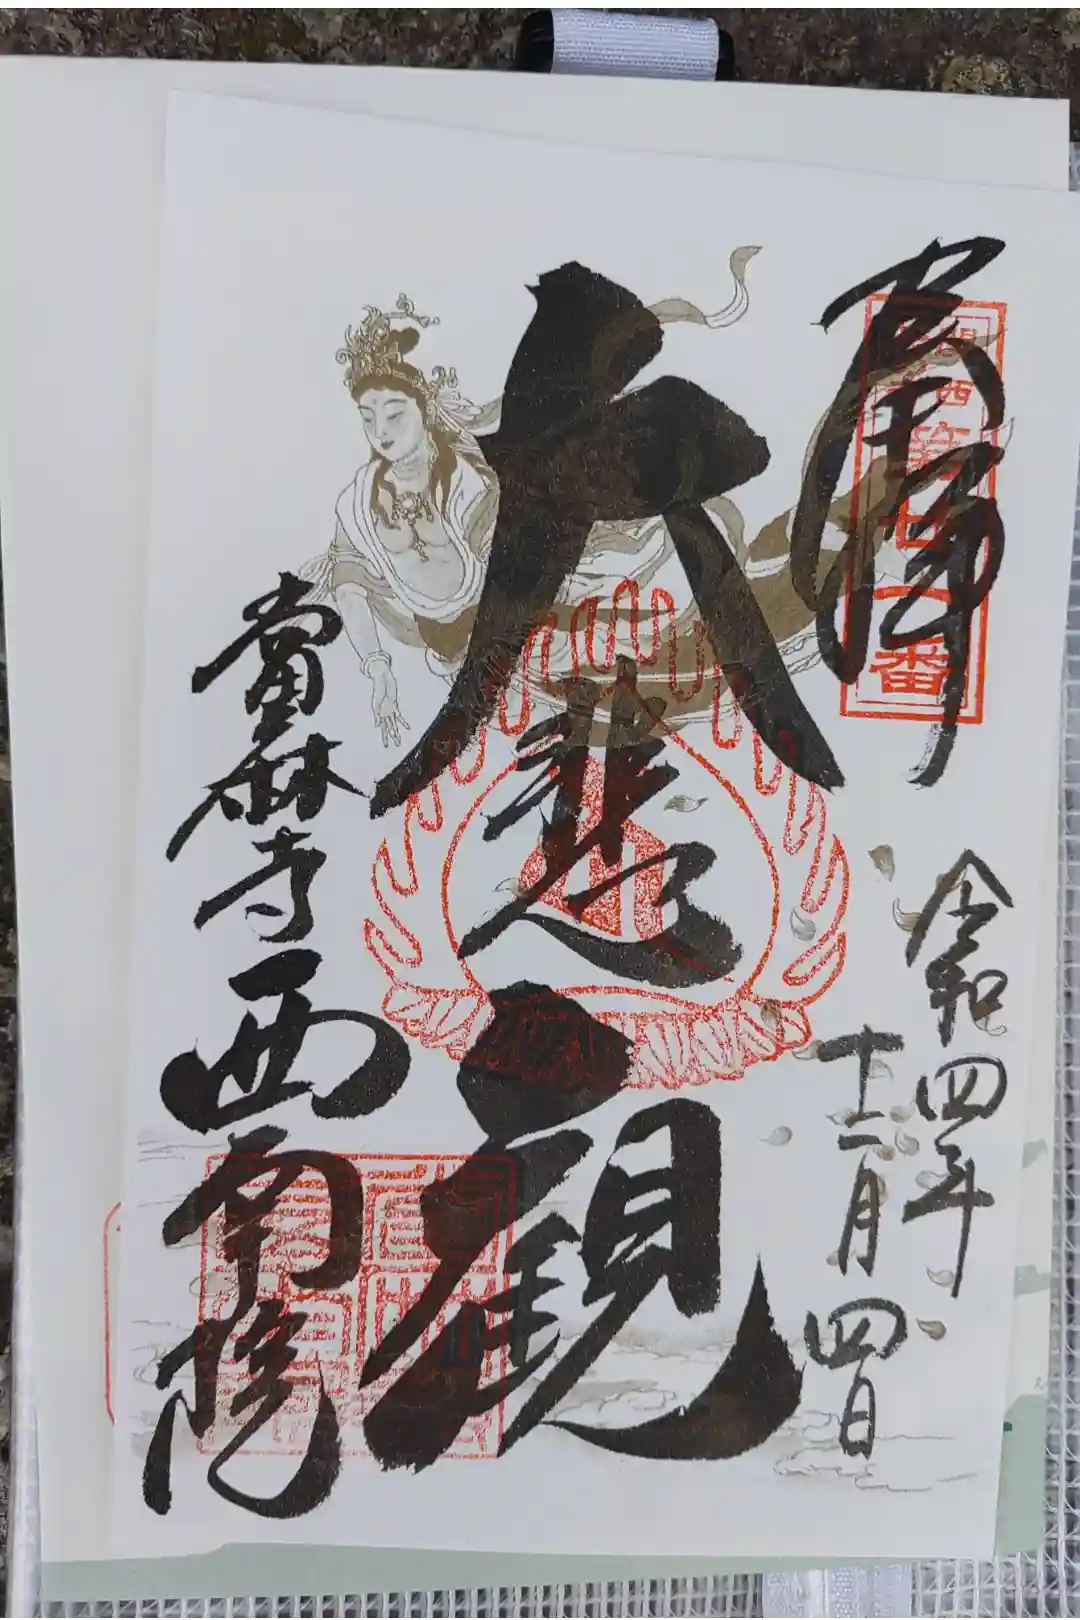 奉拝
第廿一番
令和四年
十二月四日
大悲観
當麻寺西南院